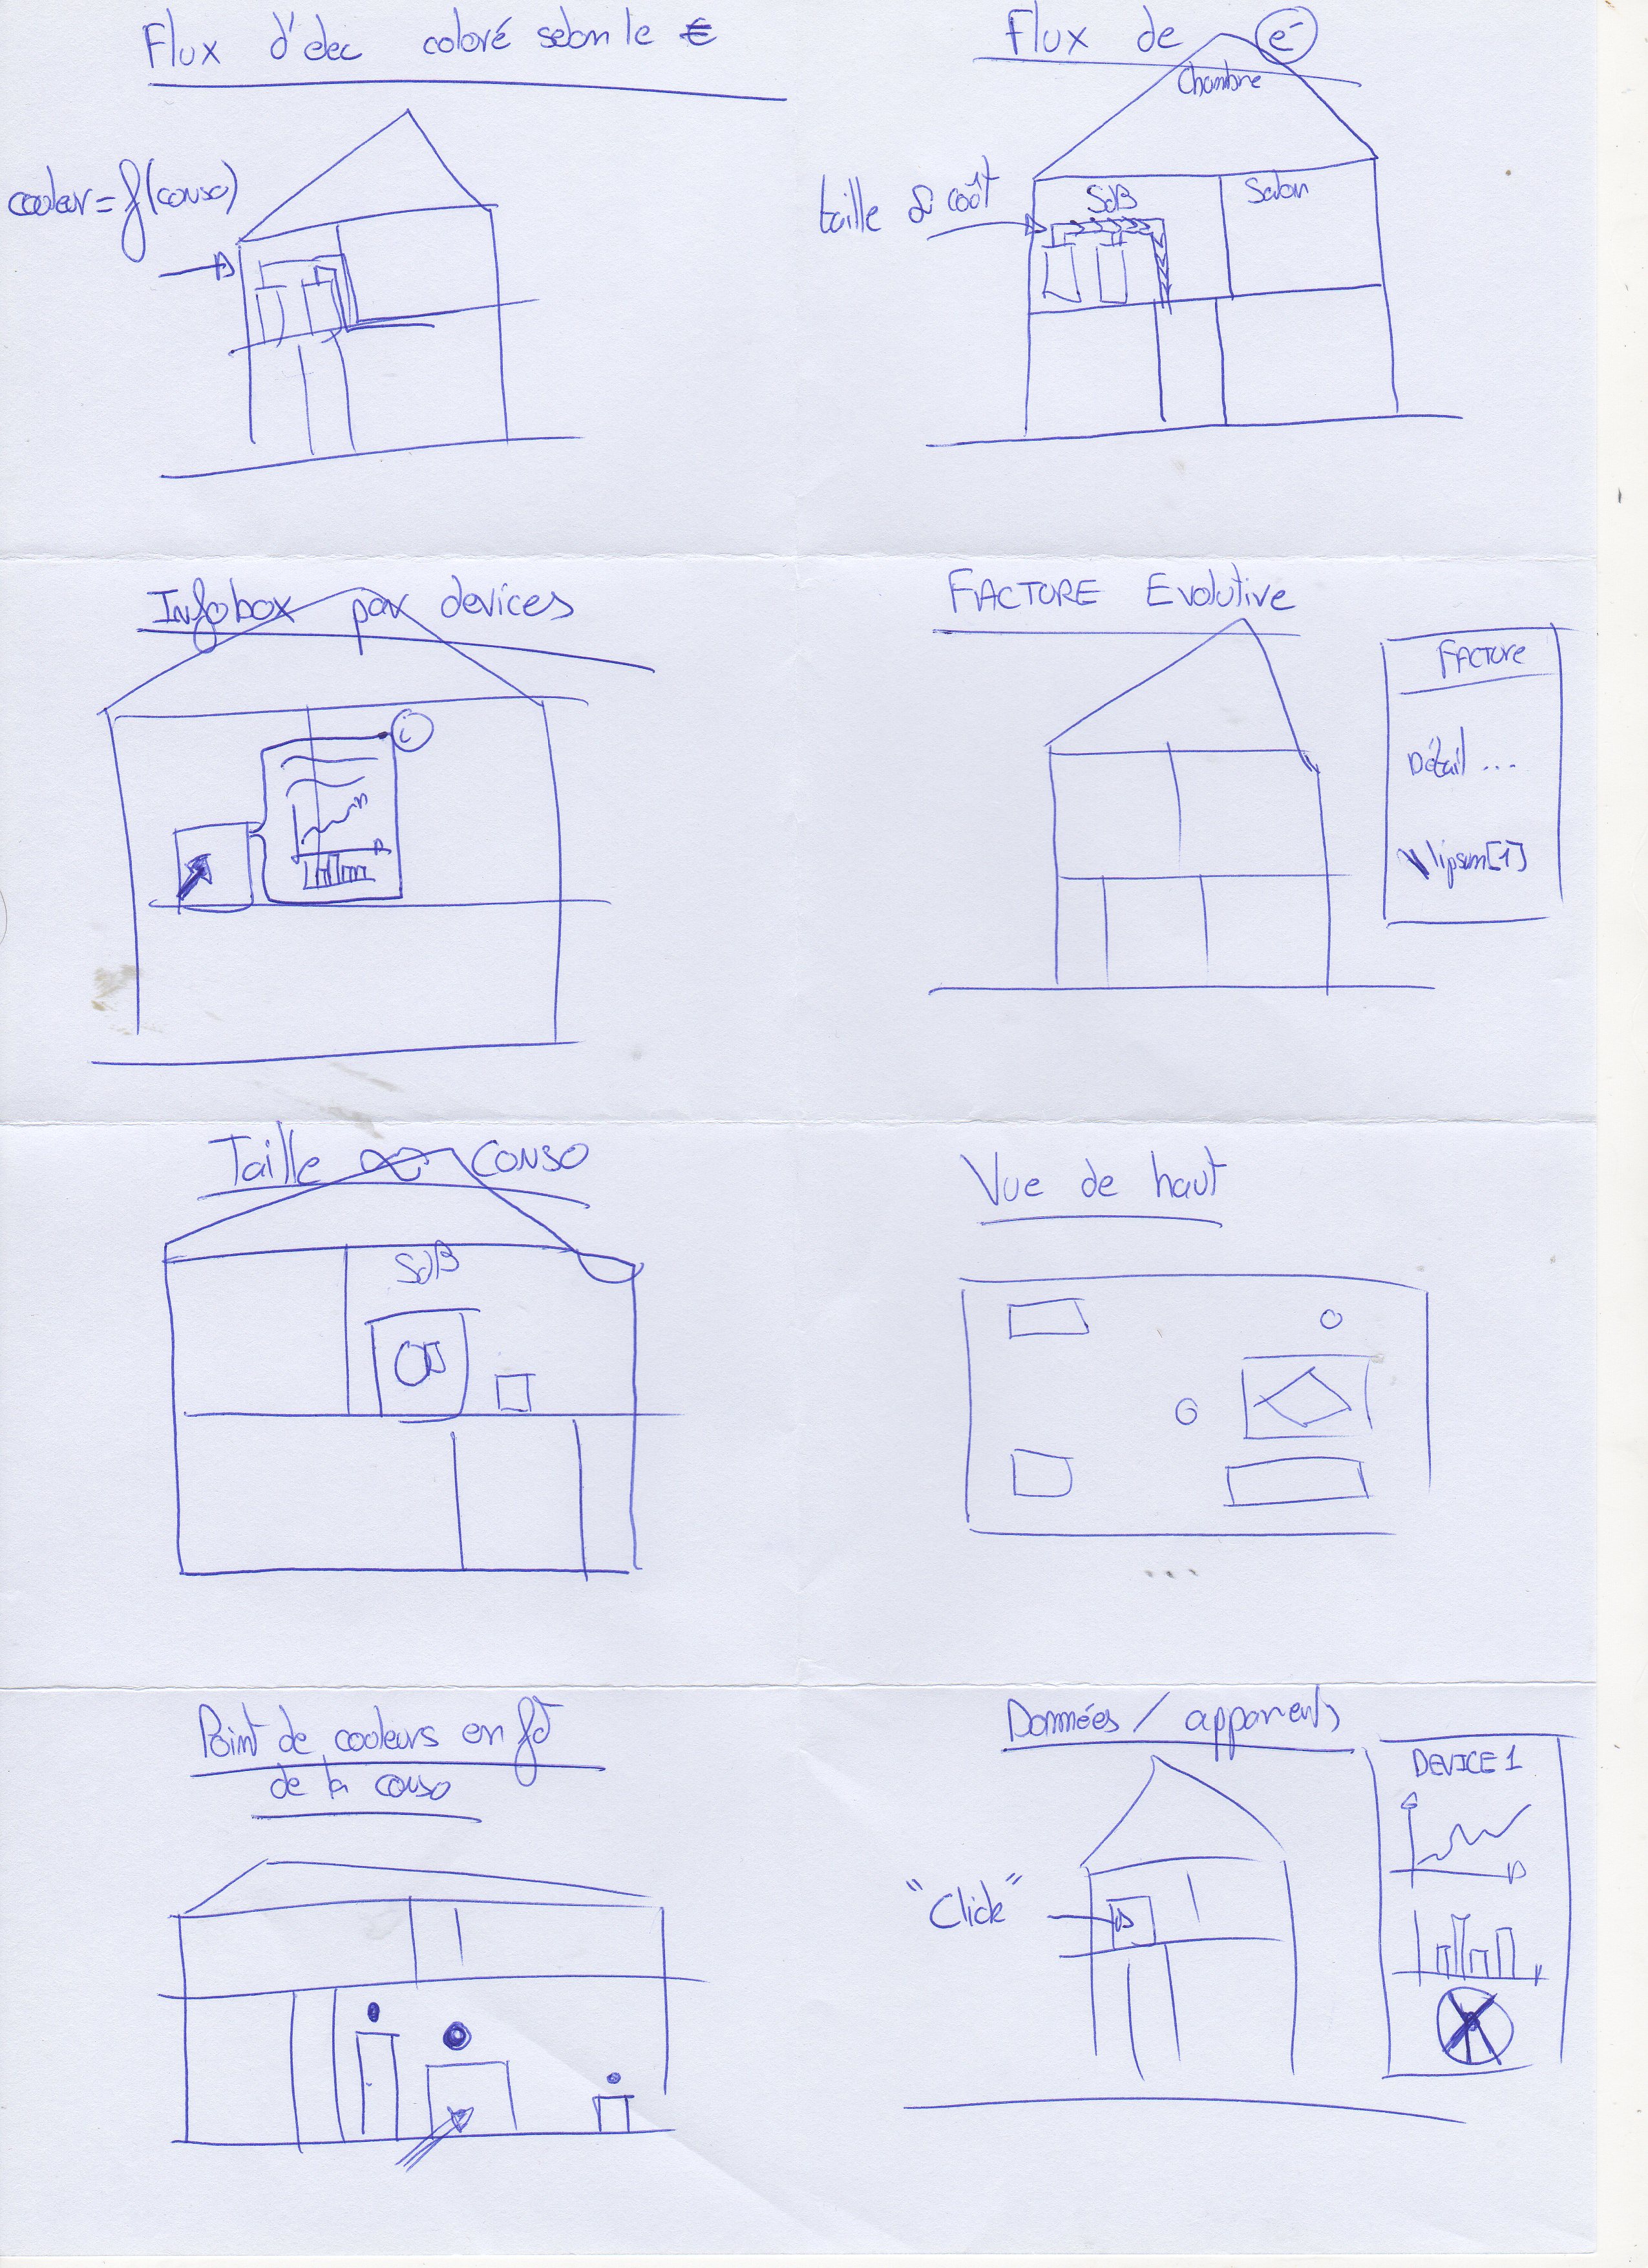 Flux d'élec coloré selon le €
couleur = f(conso)
Flux de e-
Chambre
taille ∝ coût
SdB
Salon
Infobox par devices
i
FACTURE Evolutive
FACTURE
Détail ...
Taille ∝ conso
SdB
Vue de haut
Point de couleurs en fct
de la conso
Données / appareils
"Click"
DEVICE 1